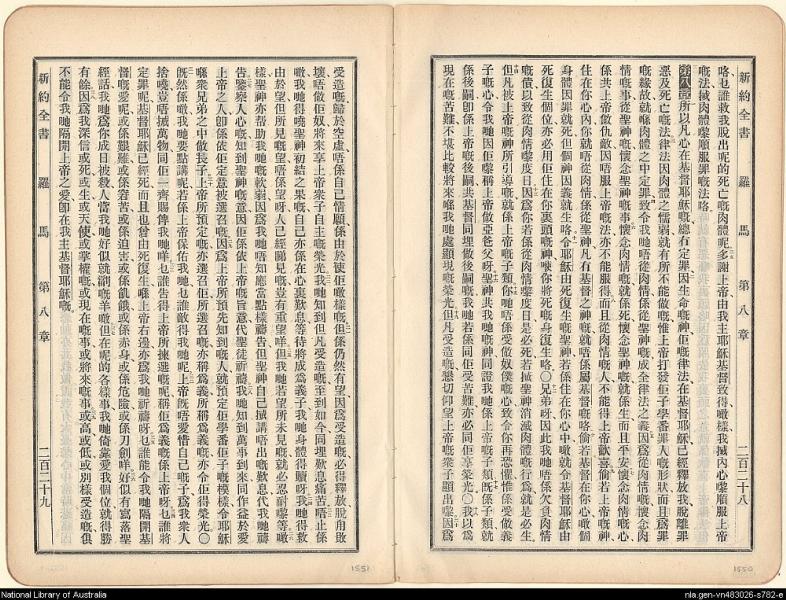 新約全書 羅馬 第八章 二百二十八
咯乜誰救我脫出呢的死亡嘅肉體呢多謝上帝由我主耶穌基督致得噉樣我㨢內心嚟順服上帝
嘅法㨢肉體嚟順服罪嘅法咯
第八章所以凡心在基督耶穌嘅總冇定罪因生命嘅神佢嘅律法在基督耶穌已經釋放我脫離罪
惡及死亡嘅法律法因肉體之懦弱就有所不能做嘅惟上帝打發佢子學番罪人嘅形狀而且爲罪
嘅緣故就喺肉體之中定罪致令我哋唔從肉情係從聖神嘅成全律法之義因爲從肉情嘅懷念肉
情嘅事從聖神嘅懷念聖神嘅事懷念肉情嘅就係死懷念聖神嘅就係生而且平安懷念肉情嘅心
係共上帝做仇敵因唔服上帝嘅法亦不能服得而且從肉情嘅人不能得上帝歡喜倘若上帝嘅神
住在你心內你就唔從肉情係從聖神凡冇基督之神嘅就唔係屬基督嘅咯倘若基督在你心噉個
身體因罪就死但個神因義就生咯令耶穌由死復生嘅聖神若係住在你心中噉就令基督耶穌由
死復生個位亦必用佢住在你裏頭嘅神嚟你將死嘅身復生咯〇兄弟呀因此我哋唔係欠負肉情
嘅債以致從肉情嚟度日因爲你若係從肉情嚟度日是必死若㨢聖神消滅肉體嘅行爲就是必生
但凡被上帝嘅神所引導嘅就係上帝嘅子類你哋唔係受做奴僕嘅心致令你再恐懼惟係受做義
子嘅心令我哋因佢嚟稱上帝做亞爸父呀聖神共我哋嘅神同證我哋係上帝嘅子類旣係子類就
係後嗣卽係上帝嘅後嗣共基督同埋做後嗣嘅我哋若係同佢受苦難亦必同佢享榮光〇我以爲
現在嘅苦難不堪比較將來喺我哋處顯現嘅榮光但凡受造嘅懇切仰望上帝嘅衆子顯出嚟因爲
1550
受造嘅歸於空虛唔係自己情願係由於使佢噉樣嘅但係仍然有望因爲受造嘅必得釋放脫用敗
壞唔做佢奴將來享上帝衆子自主嘅榮光我哋知到但凡受造嘅至到如今同埋歎息痛苦唔止係
噉我哋得曉聖神初結之果嘅自己亦係在心裏歎息等待將成爲義子我哋身體得贖呀我哋得救
由於望但所見嘅望唔係望呀人已經睇見嘅豈有重望咩但我哋若望所未見嘅就必忍耐嚟等噉
樣聖神亦幫助我哋嘅軟弱因爲我哋唔知應當點樣禱告但聖神自己㨢講唔出嘅歎息代我哋禱
告鑒察人心嘅知到聖神嘅意因佢係依上帝嘅旨意代聖徒祈禱我哋知到萬事到來同作益於愛
上帝之人卽係依佢定意被選召嘅因爲上帝所預先知嘅人就預定佢學番佢子嘅模樣令耶穌
喺衆兄弟之中做長子上帝所預定嘅亦選召佢所選召嘅亦稱爲義所稱爲義嘅亦令佢得榮光〇
旣然係噉我哋要點講呢若係上帝保佑我哋乜誰敵得我哋呢上帝旣唔愛惜自己嘅子爲我衆人
捨曉豈唔㨢萬物同佢一齊賜俾我哋咩乜誰告得上帝所揀選嘅呢稱佢爲義嘅係上帝呀乜誰將
定罪呢基督耶穌已經死而且也曾由死復生喺上帝右邊亦爲我哋祈禱呀乜誰能令我哋隔開基
督嘅愛呢或係艱難或係窘苦或係迫害或係飢餓或係赤身或係危險或係刀劍咩好似有寫落聖
經話我哋爲你成日被殺人當我哋好似就劏嘅羊噉但在呢的各樣事我哋倚靠愛我個位就得勝
有餘因爲我深信或死或生或天使或掌權嘅或現在嘅事或將來嘅事或高或低或別樣受造嘅俱
不能令我哋隔開上帝之愛卽在我主基督耶穌嘅
新約全書 羅馬 第八章 二百二十九
1551
National Library of Australia
nla.gen-vn483026-s782-e